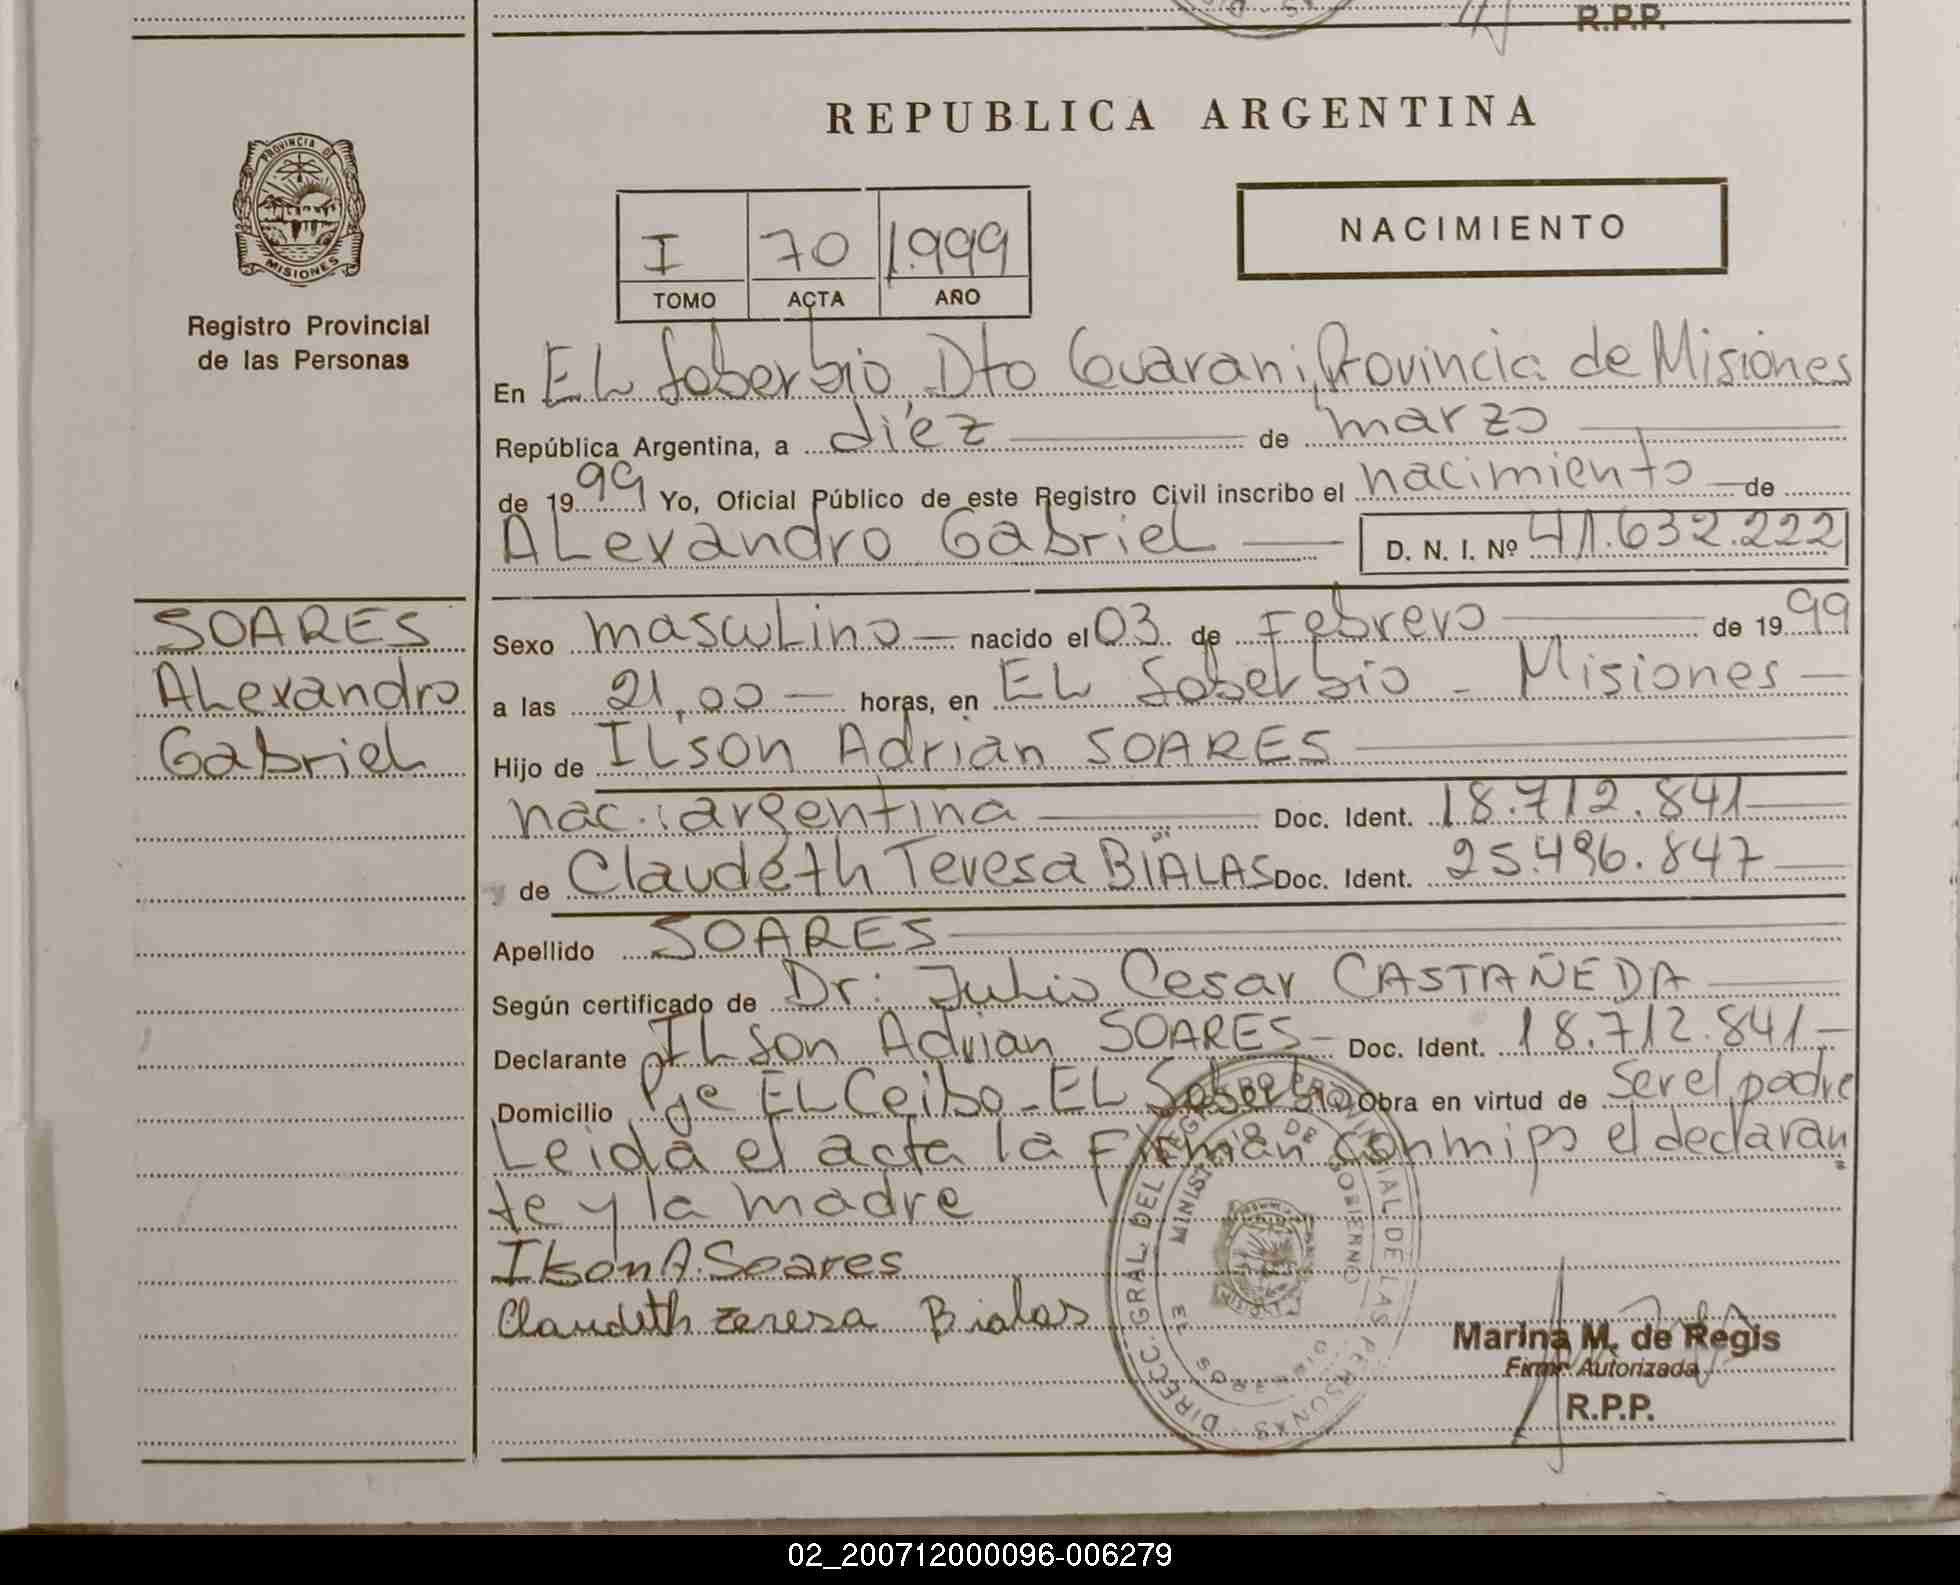 R.P.P.
REPUBLICA ARGENTINA
PROVINCIA DE
MISIONES
Registro Provincial
de las Personas
I 70 1.999
TOMO ACTA AÑO
NACIMIENTO
En EL Soberbio Dto Guarani, Provincia de Misiones
República Argentina, a diéz de marzo
de 1999 Yo, Oficial Público de este Registro Civil inscribo el nacimiento de
ALexandro GabrieL D. N. I. Nº 41.632.222
SOARES
ALexandro
GabrieL
Sexo mascuLino nacido el 03 de Febrero de 1999
a las 21,00 horas, en EL Soberbio - Misiones
Hijo de ILson Adrian SOARES
nac.: argentina Doc. Ident. 18.712.841
y de Claudéth Teresa BIALAS Doc. Ident. 25.496.847
Apellido SOARES
Según certificado de Dr: Julio Cesar CASTAÑEDA
Declarante ILson Adrian SOARES Doc. Ident. 18.712.841
Domicilio Pje EL Ceibo - EL Soberbio Obra en virtud de ser el padre
Leida el acta la Firman conmigo el declaran
te y la madre
Ilson A. Soares
Claudeth Teresa Bialas
DIRECC. GRAL. DEL REGISTRO PROVINCIAL DE LAS PERSONAS
MINISTERIO DE GOBIERNO
Marina M. de Regis
Firma Autorizada
R.P.P.
02_200712000096-006279